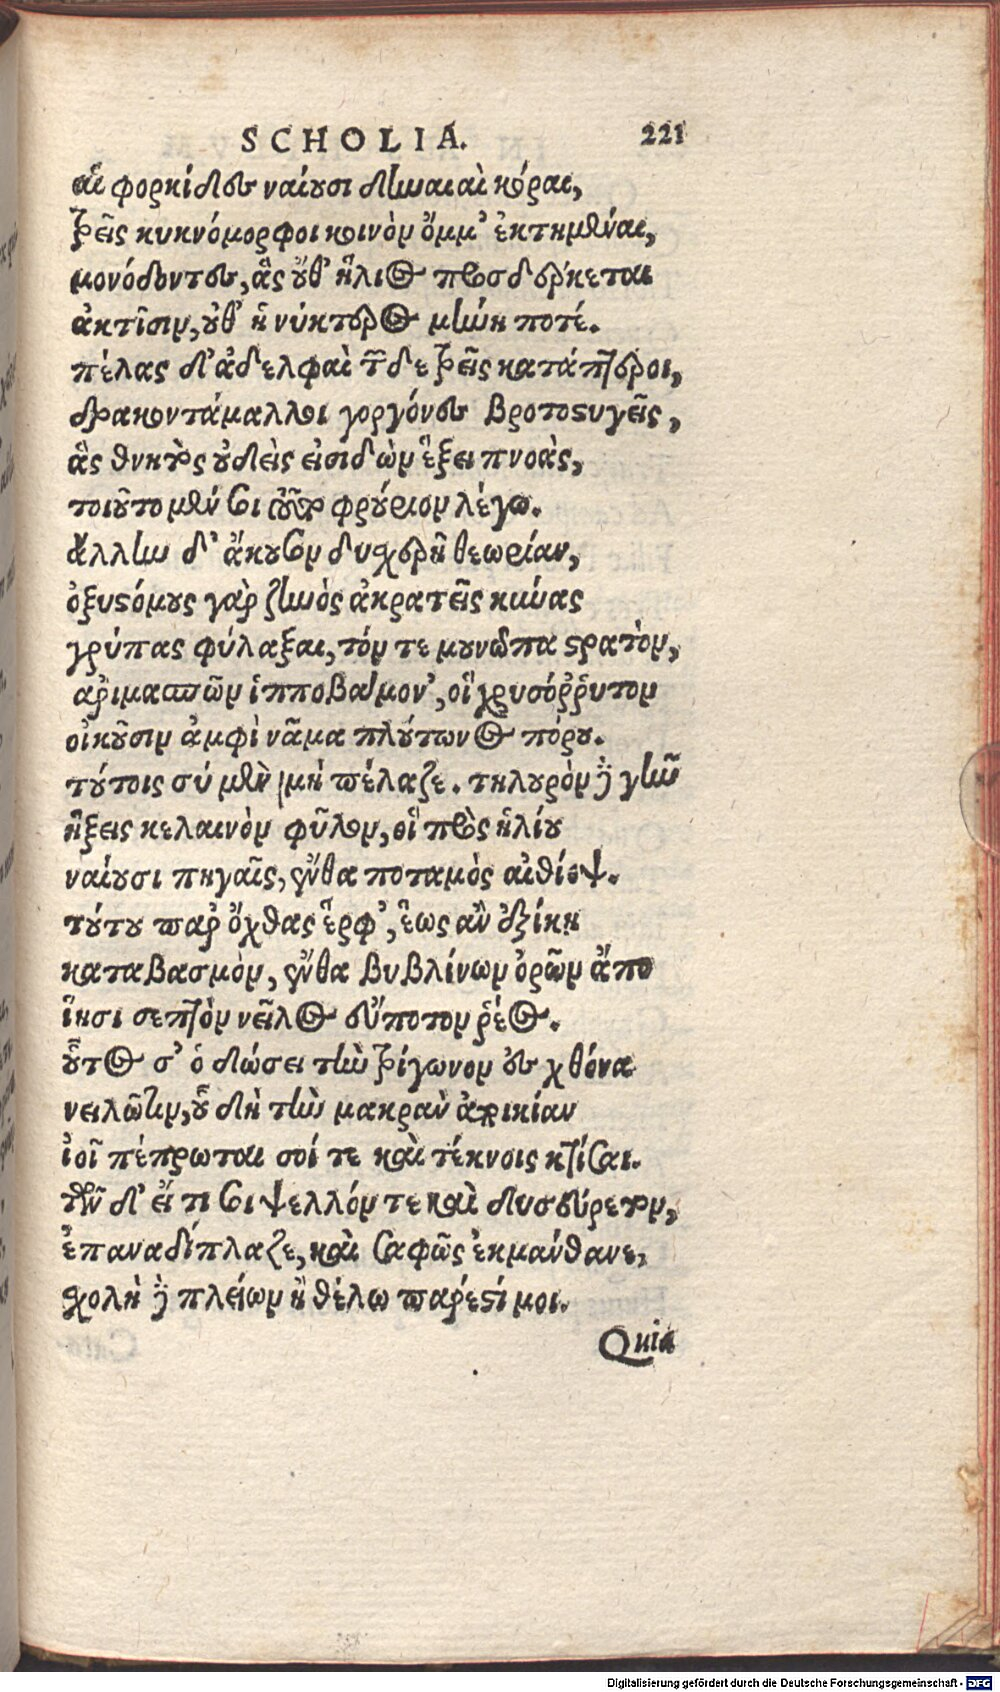 SCHOLIA. 221
αἱ φορκίδες ναίουσι δίωαιαὶ κόραι,
τρεῖς κυκνόμορφοι κοινὸν ὄμμ’ ἐκτημέναι,
μονόδοντες, ἃς οὔθ’ ἥλιος προσδέρκεται
ἀκτῖσιν, οὐθ’ ἡ νύκτερος μήνη ποτέ.
πέλας δ’ ἀδελφαὶ τῶνδε τρεῖς κατάπτεροι,
δρακοντόμαλλοι γοργόνες βροτοστυγεῖς,
ἃς θνητὸς οὐδεὶς εἰσιδὼν ἕξει πνοὰς,
τοιοῦτο μέν σοι τοῦτο φρούριον λέγω.
ἄλλην δ’ ἄκουσον δυσχερῆ θεωρίαν,
ὀξυστόμους γὰρ ζηνὸς ἀκραγεῖς κύνας
γρύπας φύλαξαι, τόν τε μουνῶπα στρατὸν,
ἀριμασπῶν ἱπποβάμον’, οἳ χρυσόῤῥυτον
οἰκοῦσιν ἀμφὶ νᾶμα πλούτωνος πόρου.
τούτοις σύ μὲν μὴ πέλαζε. τηλουρὸν δὲ γῆν
ἥξεις κελαινὸν φῦλον, οἳ πρὸς ἡλίου
ναίουσι πηγαῖς, ἔνθα ποταμὸς αἰθίοψ.
τούτου παρ’ ὄχθας ἕρφ’, ἕως ἂν ἐξίκῃ
καταβασμὸν, ἔνθα βυβλίνων ὀρῶν ἄπο
ἵησι σεπτὸν νεῖλος εὔποτον ῥέος.
οὗτος σ’ ὁδώσει τὴν τρίγωνον ἐς χθόνα
νειλῶτιν, οὗ δὴ τὴν μακρὰν ἀποικίαν
ἰοῖ πέπρωται σοί τε καὶ τέκνοις κτίσαι.
τῶν δ’ εἴ τι σοι ψελλόν τε καὶ δυσεύρετον,
ἐπαναδίπλαζε, καὶ σαφῶς ἐκμάνθανε,
σχολὴ δὲ πλείων ἢ θέλω πάρεστί μοι.
Quia
Digitalisierung gefördert durch die Deutsche Forschungsgemeinschaft - DFG